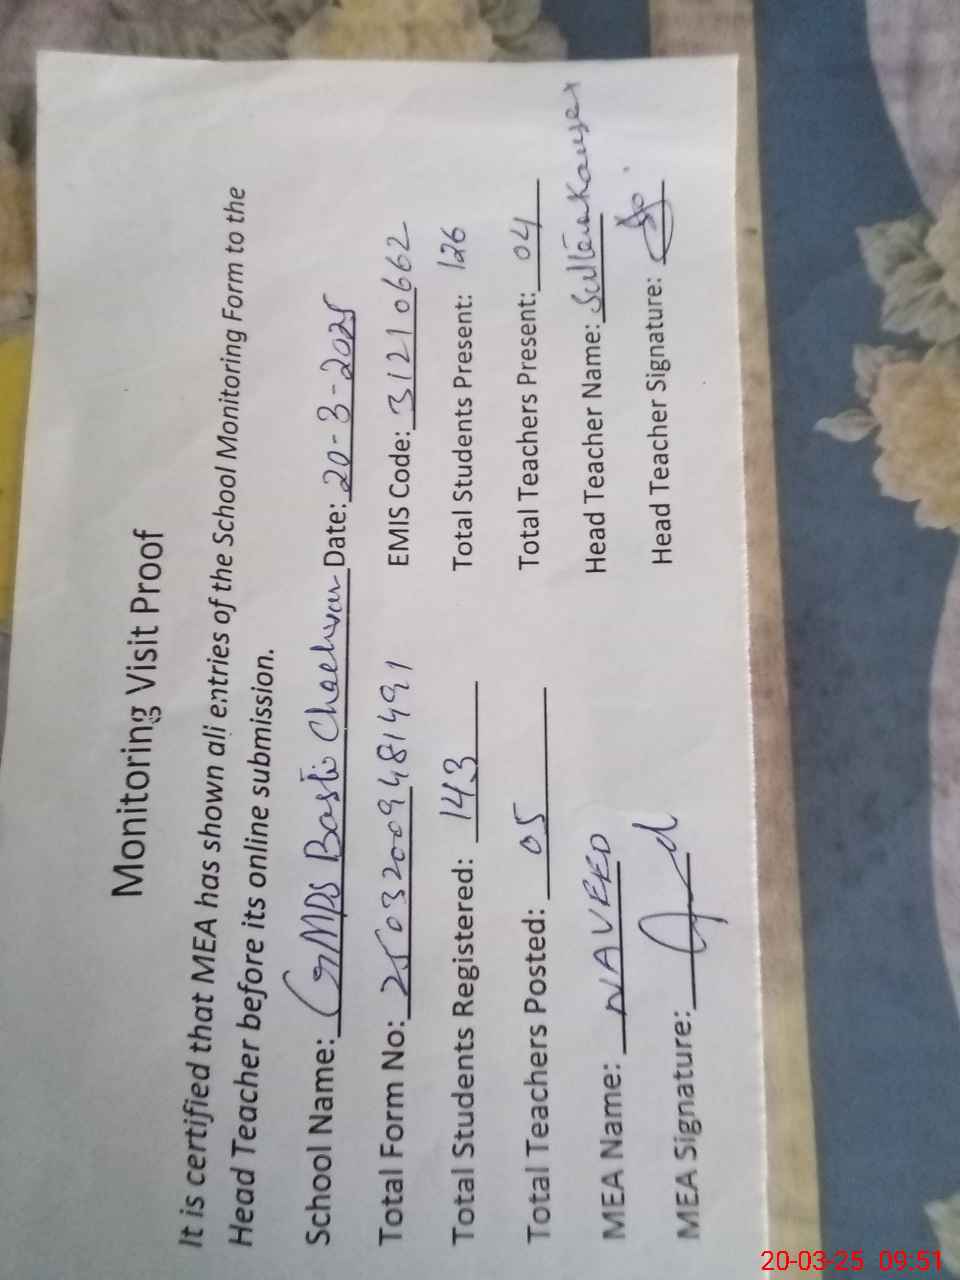 Monitoring Visit Proof
It is certified that MEA has shown all entries of the School Monitoring Form to the
Head Teacher before its online submission.
School Name: GMPS Basti Chachran Date: 20-3-2025
Total Form No: 25032009481491 EMIS Code: 31210662
Total Students Registered: 143 Total Students Present: 126
Total Teachers Posted: 05 Total Teachers Present: 04
MEA Name: NAVEED Head Teacher Name: Sultana Kauser
MEA Signature: Head Teacher Signature:
20-03-25 09:51